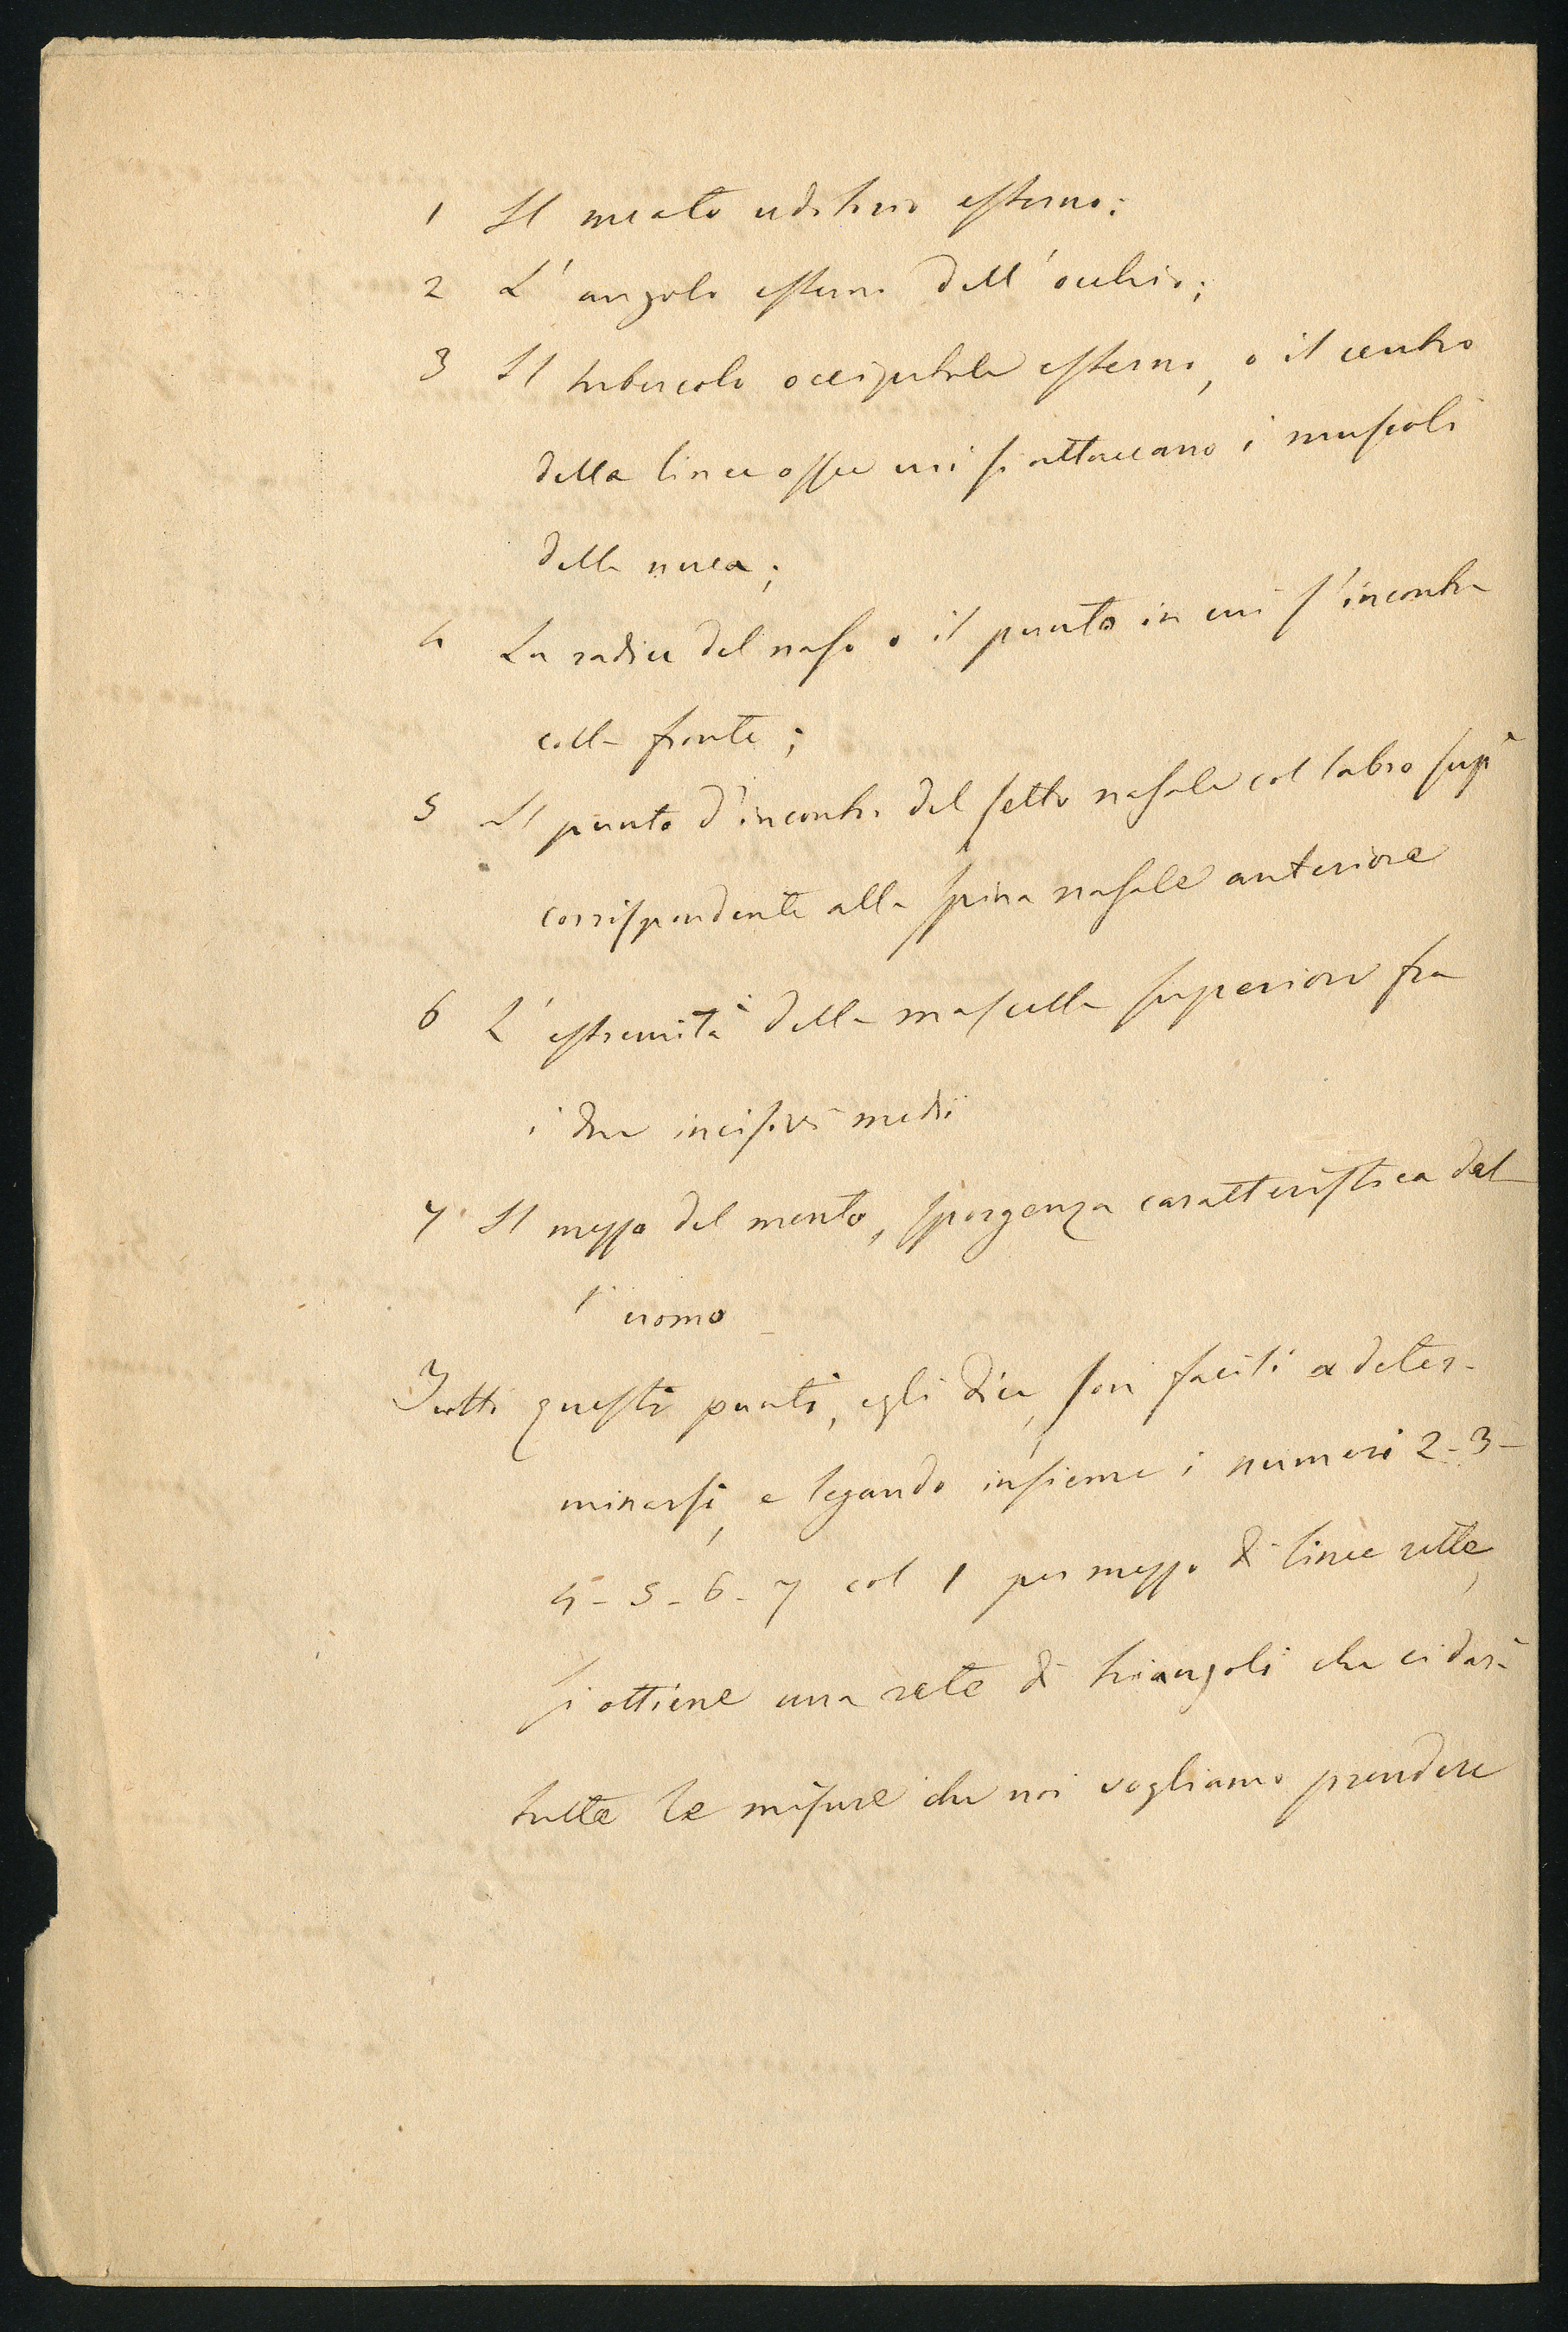 1 Il meato uditivo esterno:
2 L'angolo esterno dell'occhio;
3 Il tubercolo occipitale esterno, o il centro
della linea ossea cui si attaccano i muscoli
della nuca;
4 La radice del naso o il punto in cui s'incontra
colla fronte;
5 Il punto d'incontro del setto nasale col labro supe
corrispondente alla spina nasale anteriore
6 L'estremità della mascella superiore fra
i due incisivi medii
7 Il mezzo del mento, sporgenza caratteristica del
l'uomo
Tutti questi punti, egli dice, son facili a deter-
minarsi, e legando insieme i numeri 2-3-
4-5-6-7 col 1 per mezzo di linee rette,
si ottiene una rete di triangoli che ci darà
tutte le misure che noi vogliamo prendere